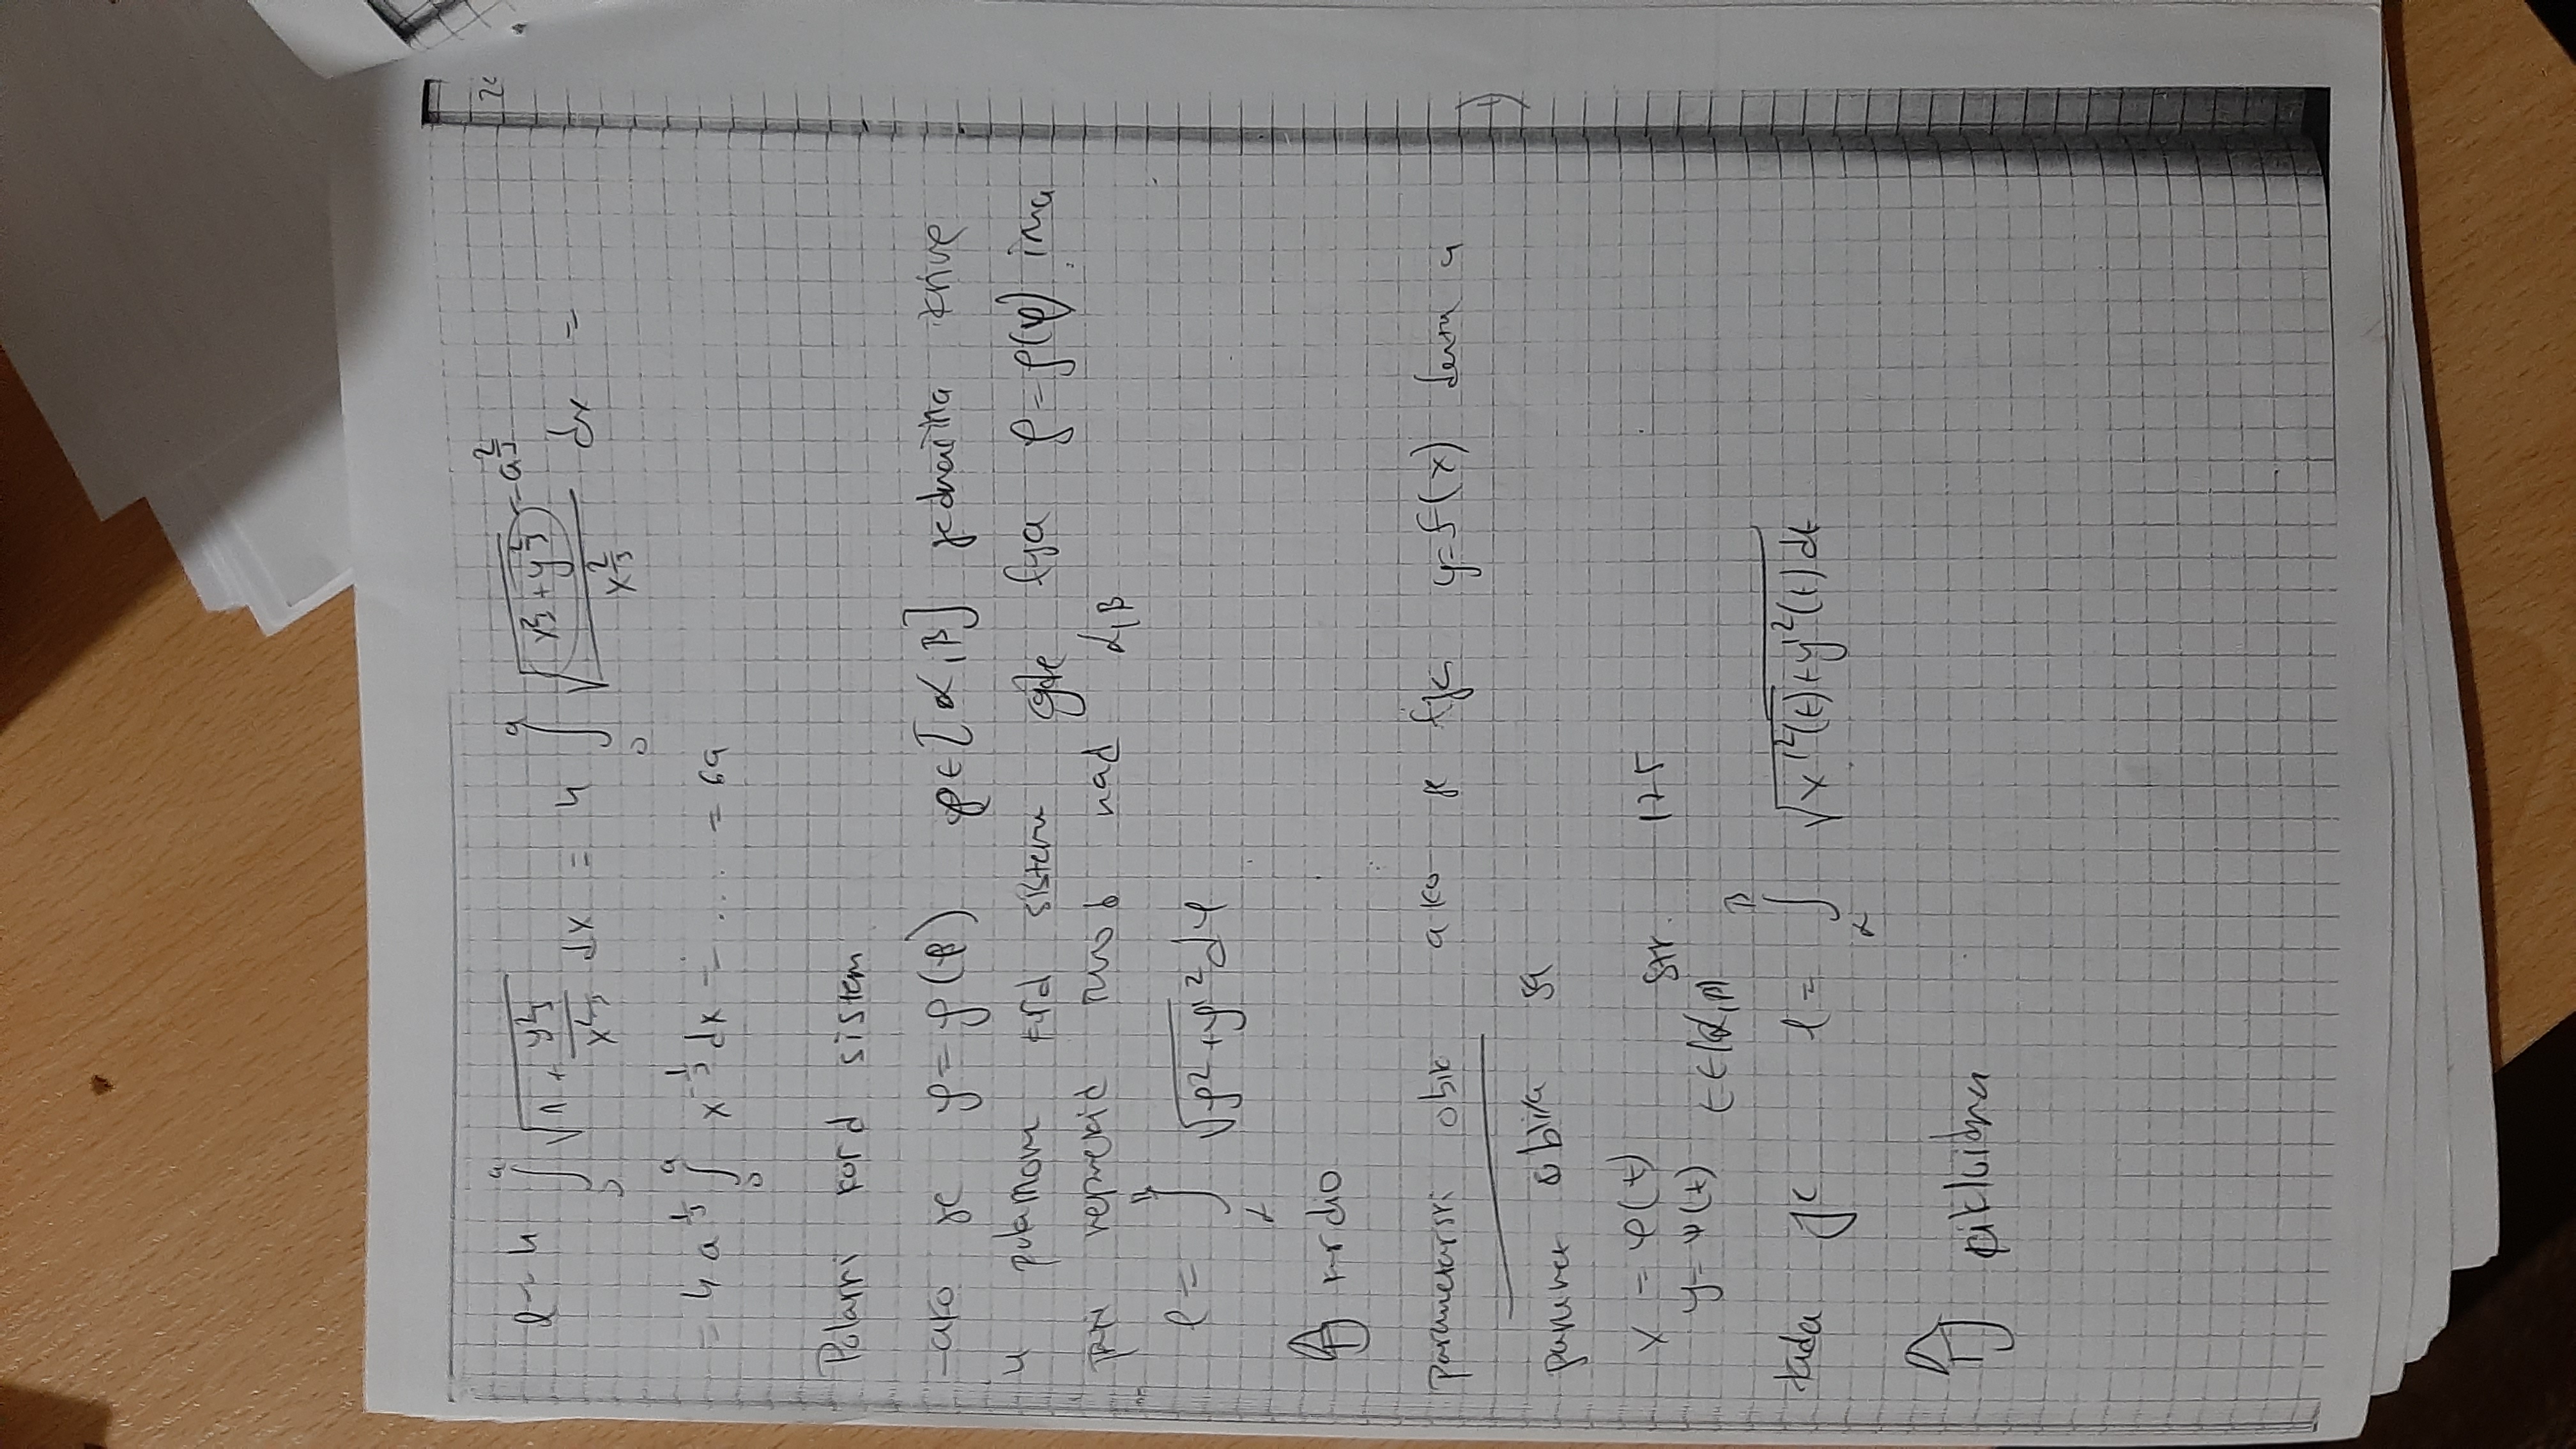 l = 4 ∫₀ᵃ √(1 + y^(2/3)/x^(2/3)) dx = 4 ∫₀ᵃ √((x^(2/3) + y^(2/3))/x^(2/3)) dx = = a^(2/3)
= 4 a^(1/3) ∫₀ᵃ x^(-1/3) dx = .... = 6a
Polarni kord sistem
-ako je ρ = ρ(φ) φ ∈ [α, β] jednačina krive
u polarnom kord sistemu gde fja ρ = ρ(φ) ima
nad α, β
l = ∫_α^β √(ρ² + ρ'²) dφ
kardio
parametarski oblik ako je fja y = f(x) data u
paramet oblika sa
x = φ(t)
str. 125
y = ψ(t) t ∈ [α, β]
tada je l = ∫_α^β √(x'²(t) + y'²(t) dt
cikloidna